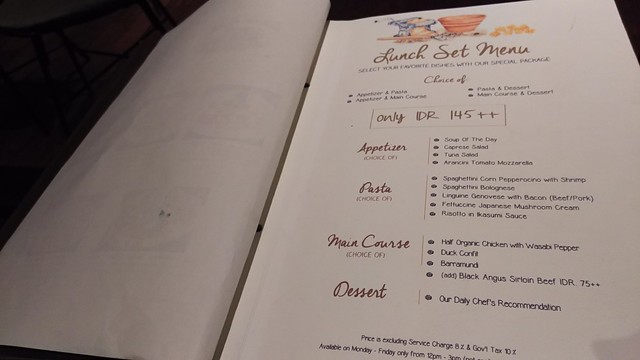 Lunch Set Menu
SELECT YOUR FAVORITE DISHES WITH OUR SPECIAL PACKAGE
Choice of
Appetizer & Pasta
Appetizer & Main Course
Pasta & Dessert
Main Course & Dessert
only IDR 145++
Appetizer
(CHOICE OF)
Soup Of The Day
Caprese Salad
Tuna Salad
Arancini Tomato Mozzarella
Pasta
(CHOICE OF)
Spaghettini Corn Pepperocino with Shrimp
Spaghettini Bolognese
Linguine Genovese with Bacon (Beef/Pork)
Fettuccine Japanese Mushroom Cream
Risotto in Ikasumi Sauce
Main Course
(CHOICE OF)
Half Organic Chicken with Wasabi Pepper
Duck Confit
Barramundi
(add) Black Angus Sirloin Beef IDR. 75++
Dessert
Our Daily Chef's Recommendation
Price is excluding Service Charge 8% & Gov't Tax 10%
Available on Monday - Friday only from 12pm - 3pm